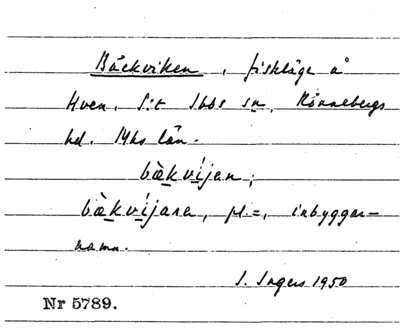 Bäckviken, fiskläge å
Hven, S:t Ibbs sn, Rönnebergs
hd. Mhs län.
bὰkvíjen;
bὰkvíjara, pl. =, inbyggar-
namn.
I. Ingers 1950
Nr 5789.